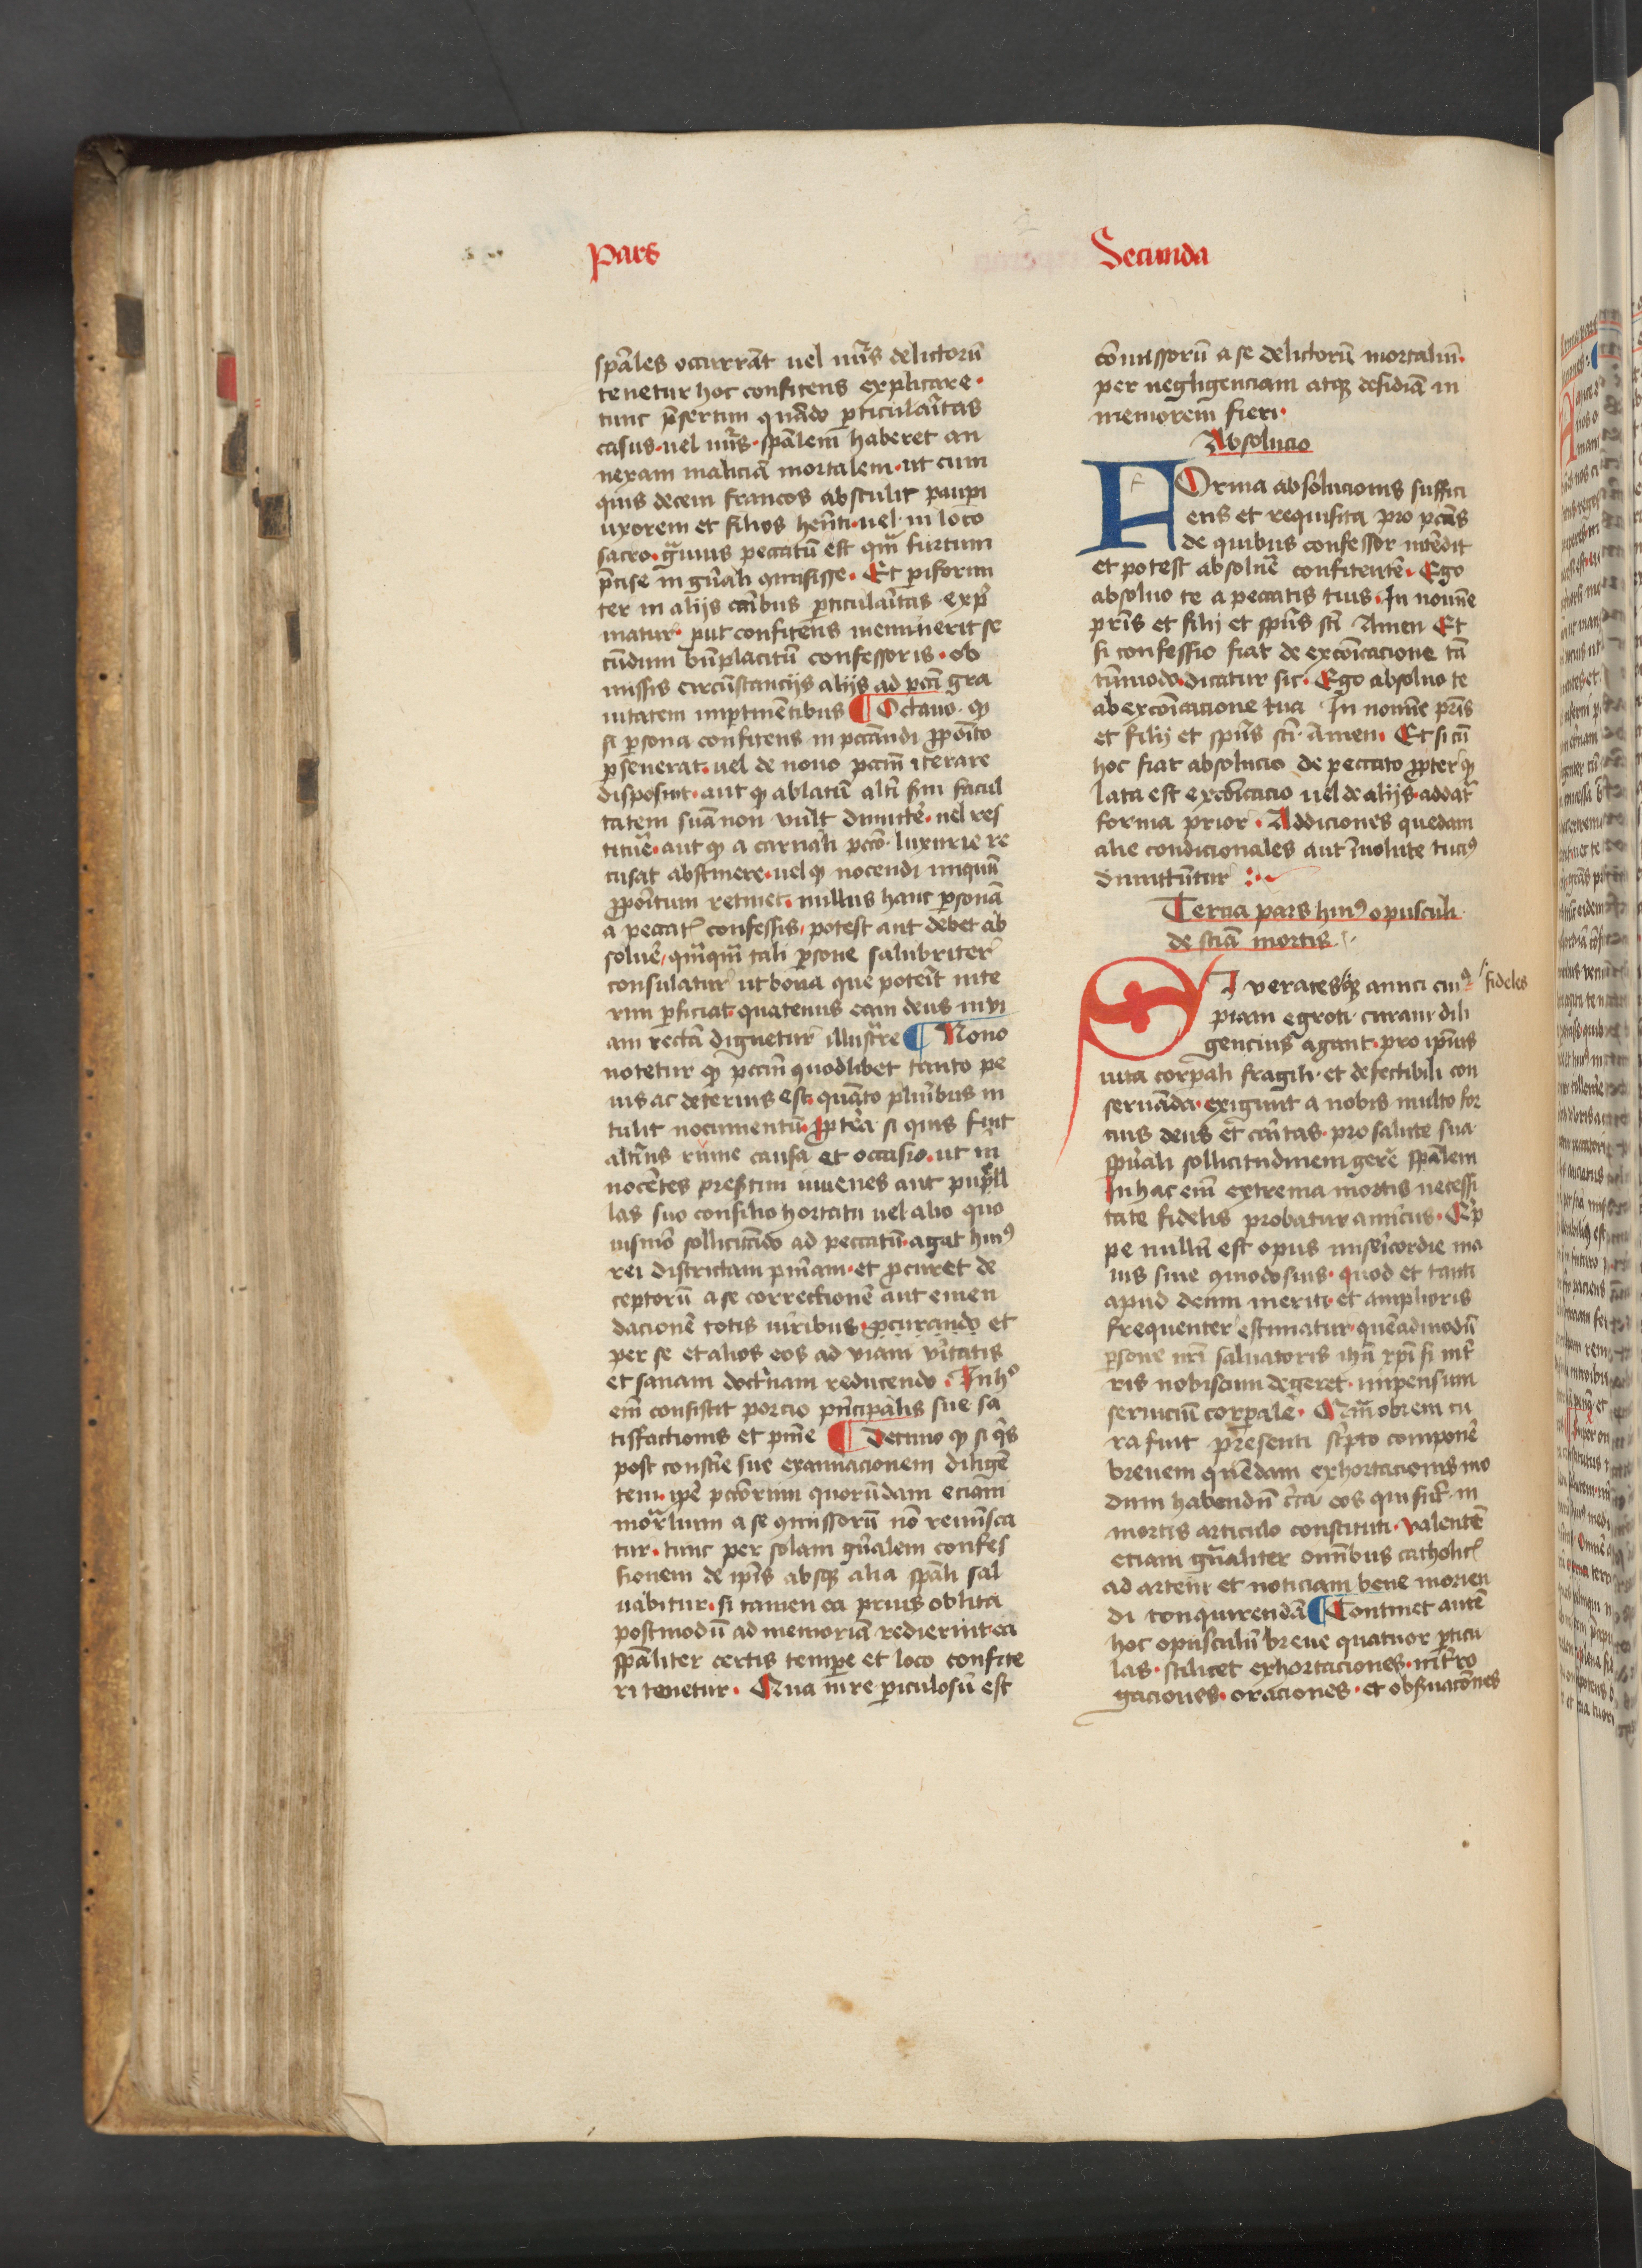 Pars
Secunda
spāles occurrāt uel nūs delictorū
tenetur hoc confitens explicare·
tunc p̄sertim quādo pticulāitas
casus·uel nūs·spālem haberet an
nexam maliciā mortalem·ut cum
quis decem francos abstulit paupi
uxorem et filios hn̄ti·uel in loco
sacro·ḡuius peccatū est qm̄ furtum
p̄cise in gn̄ali qmisisse· Et piformi
ter in alijs cān̄bus pticulāitas exp̄
matur· put confitens meminerit se
cūdum bn̄placitū confessoris·ob
missis circūstancijs alijs ad pccī gra
uitatem imptinētibus ¶ Octauo·qꝫ
si psona confitens in pccāndi ꝓpōito
pseuerat·uel de nouo pccm̄ iterare
disposuit·aut qꝫ ablatū altī sm̄ facul
tatem suā non uult dimitte᷑·uel res
titue᷑·aut qꝫ a carnali pccō luxurie re
cusat abstinere·uel qꝫ nocendi iniquū
ꝓpōitum retinet·nullus hanc psonā
a peccat̄ confessis·potest aut debet ab
solue᷑·qm̄qm̄ tali psone salubriter
consulatur ut bona que potēit inte
rim pficiat·quatenus eam deus in ui
am rectā dignetur illustrare ¶ Nono
notetur qꝫ pccm̄ quodlibet tanto pe
ius ac deterius est·quāto plurībus in
tulit nocumentū·ꝓptea si quis fuit
alterīus ruine causa et occasio·ut in
nocētes presertim iuuenes aut pupill
las suo consilio hortatu uel alio quo
uismō sollicitādo ad peccatū·agat huiꝰ
rei districtam pn̄iam·et pcuret de
ceptorū a se correctionē aut emen
dacionē totis uiribus·pcurando et
per se et alios eos ad uiam uītatis
et sanam doctrīnam reducendo· In hͦ
eīm consistit porcio prīncipalis sue sa
tisfactionis et pn̄ie ¶ Decimo qꝫ si qͥs
post consciē sue examinacionem diligē
tem·ipē pctōrum quorūdam eciam
mortalium a se qmissorū nō reminīsca
tur·tunc per solam gn̄alem confes
sionem de ip̄is absqꝫ alia spāli sal
uabitur·si tamen ea prius oblita
postmodū ad memoriā redierint·ea
spāliter certis tempe et loco confite
ri tenetur· Qua in re piculosū est
cōmissorū a se delictorū mortaliū·
per negligenciam atqꝫ desidiā in
memorem fieri·
Absolucio
FOrma absolucionis suffici
ens et requisita pro pccīs
de quibus confessor intēdit
et potest absolue᷑ confitentē· Ego
absoluo te a peccatis tuis·In nomīe
pris et filij et spūs scī Amen Et
si confessio fiat de excōicacione tā
tūmodo·dicatur sic· Ego absoluo te
ab excōicacione tua In nomīe pris
et filij et spūs scī·Amen· Et si cū
hoc fiat absolucio de peccato ꝓpter qꝫ
lata est excōicacio uel de alijs·addat᷑
forma prior· Addiciones quedam
alie condicionales aut īuolute tuciꝰ
dimittūtur
Tercia pars huiꝰ opusculi
de sciā mortis
SI veraces qꝫ amici cuiꝰ
fideles
piam egroti curam dili
gencius agant·pro ipīus
uita corpali fragili·et defectibili con
seruāda·exigunt a nobis multo for
cius deus et cāitas·pro salute sua
spūali sollicitudinem gere᷑ spālem
In hac eīm extrema mortis necessi
tate fidelis probatur amicus· Quip
pe nullū est opus misericordie ma
ius siue qmodosius· quod et tanti
apud deum meriti·et amplioris
frequenter estimatur·quēadmodū
psone nrī saluatoris ihū xp̄i si int̄
ris nobiscum degeret·impensum
seruiciū corpale· Qm̄obrem cu
ra fuit presenti scrīpto compone᷑
breuem quēdam exhortacionis mo
dum habendū cīca eos qui sūt in
mortis articulo constituti·valentē
eciam gn̄aliter omībus catholic̄
ad artem et noticiam bene morien
di conquirendā ¶ Continet autē
hoc opusculū breue quatuor pticu
las·scilicet exhortaciones·interro
gaciones·oraciones·et obsuacōnes